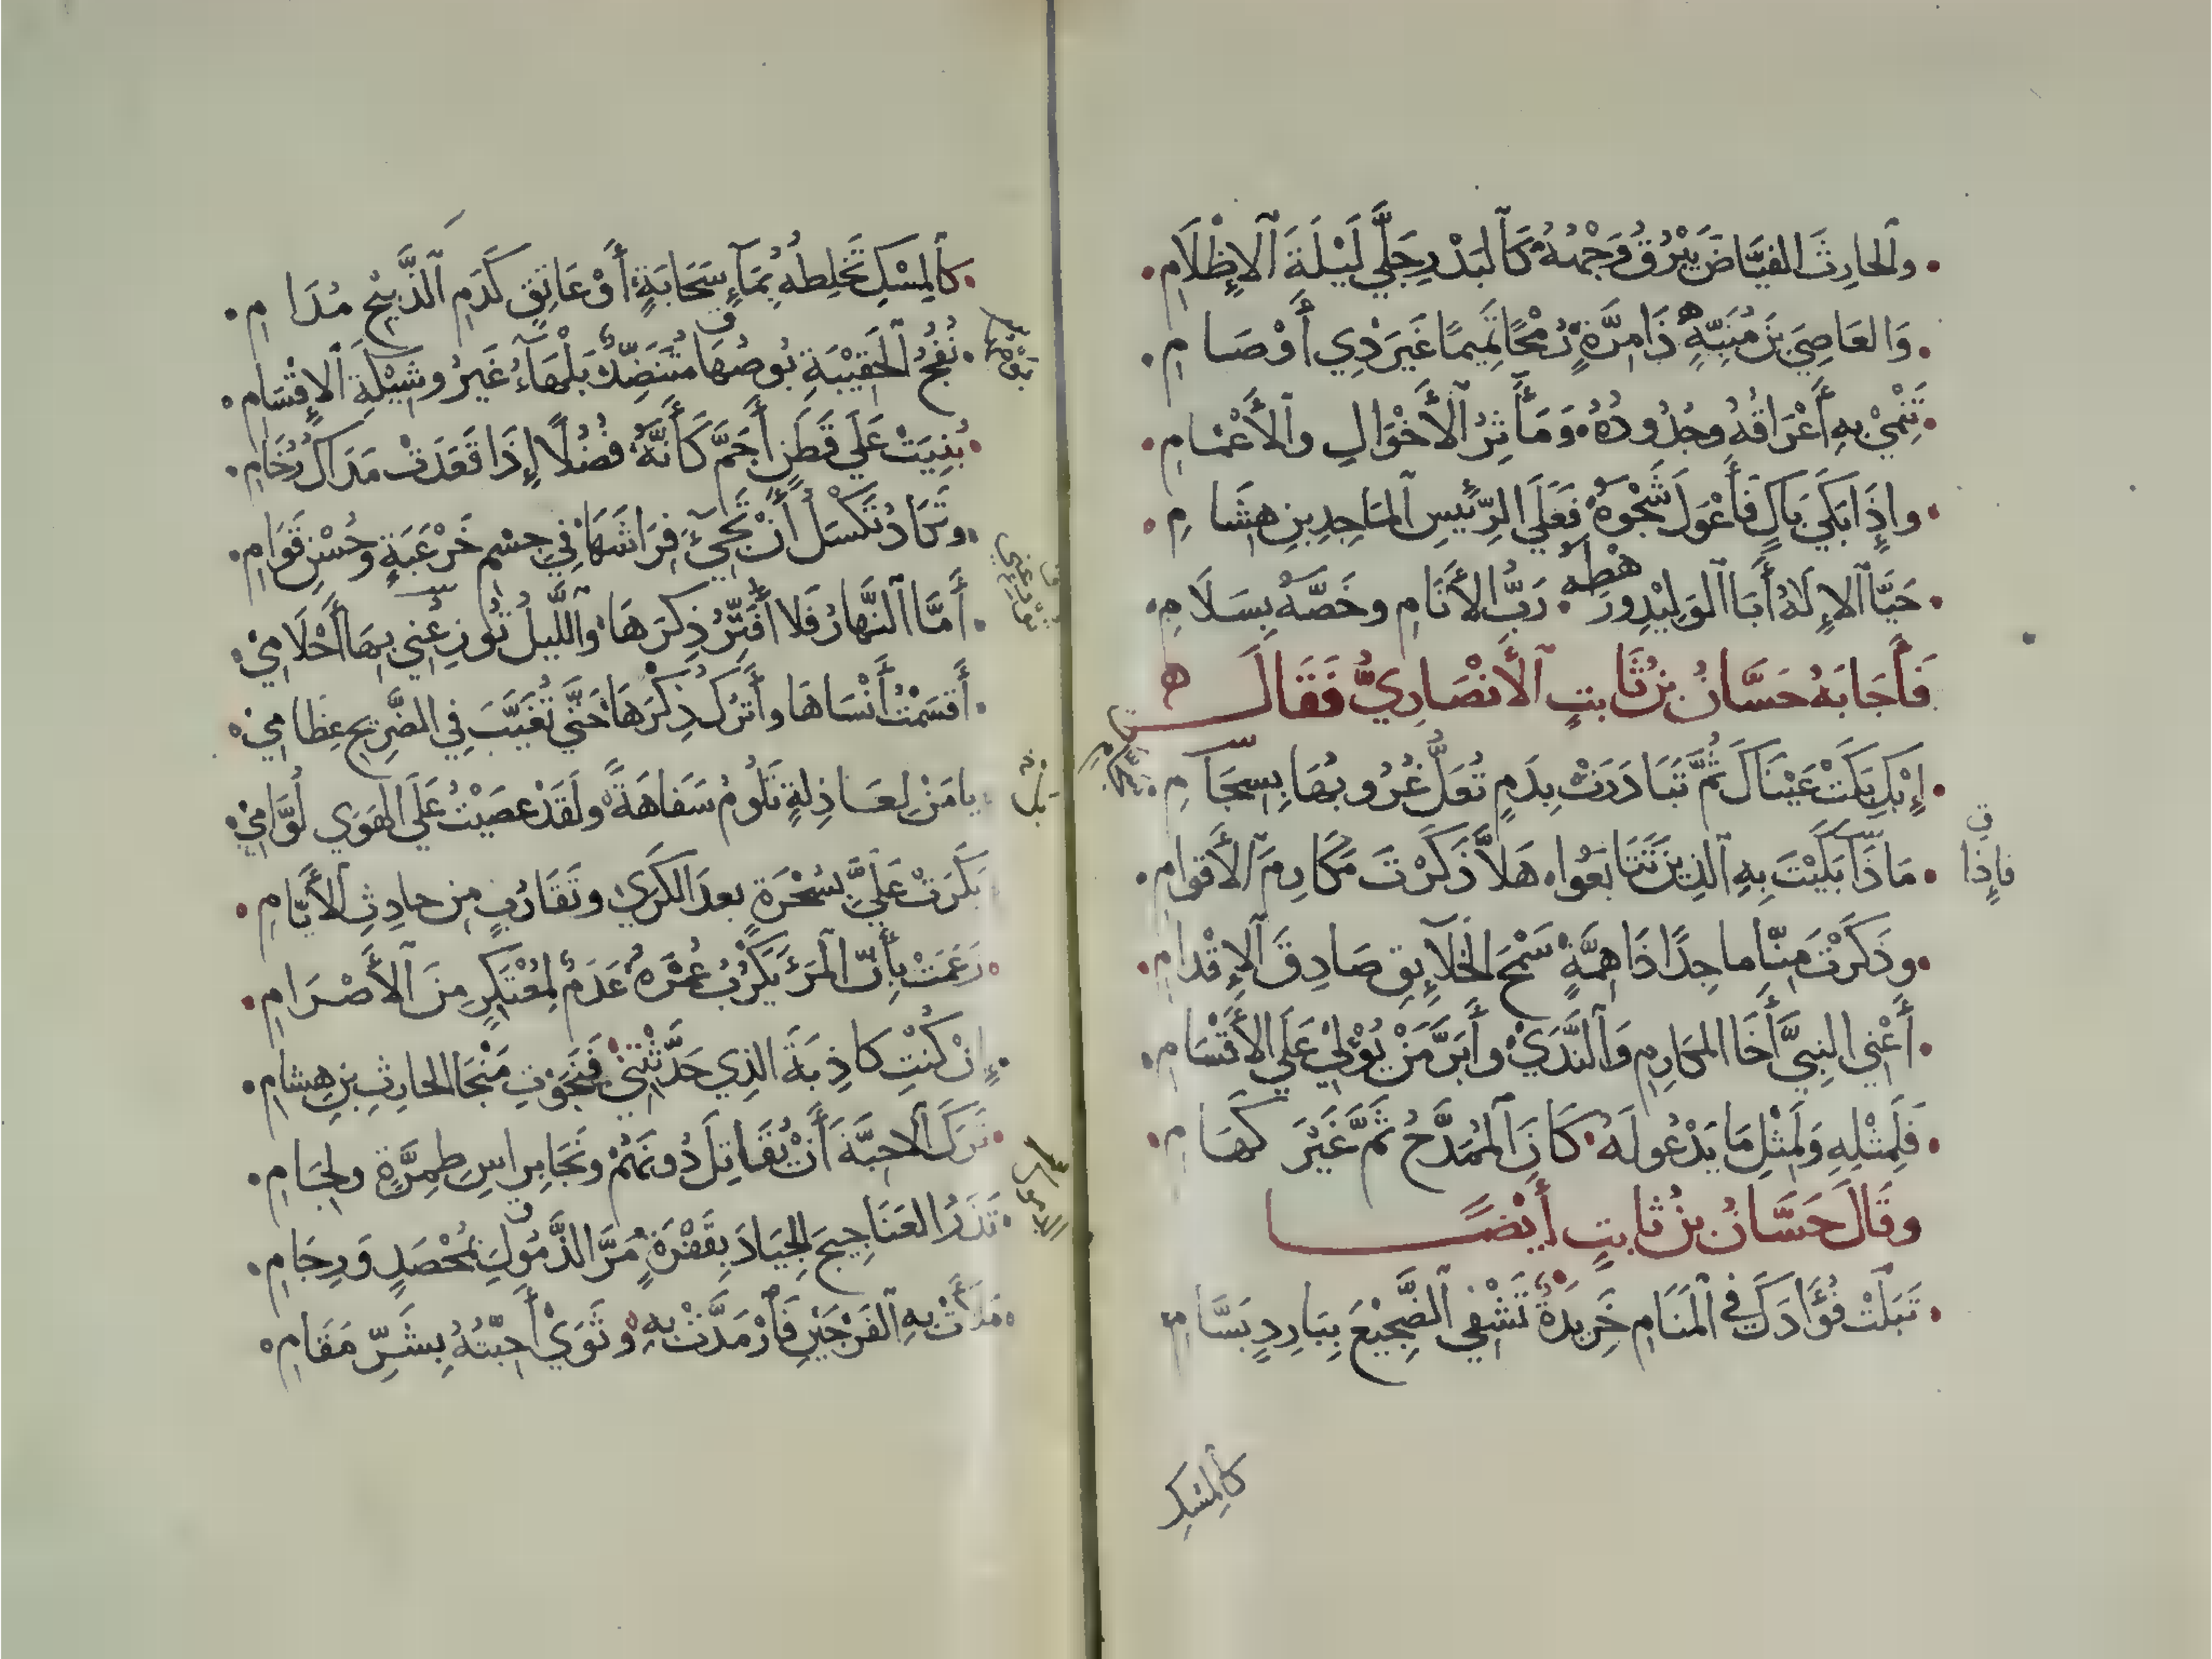 والحارِثَ الفيَّاضَ يَبْرُقُ وَجْهُهُ كَالبَدْرِ جَلَّي لَيْلَةَ الإِظْلَامِ
وَالعَاصِيَ بنَ مُنَبِّهٍ ذَا مِرَّةٍ رُمْحًا تَمِيمًا غَيرَ ذِي أَوْصَامِ
تَنْمِيْ بِهِ أَعْرَاقُهُ وجُدُودُهُ وَمَأَثِرُ الأَخْوَالِ والأَعْمَامِ
وإِذَا بَكَي بَاكٍ فَأَعْوَلَ شَجْوَهُ فَعَلَي الرَّئيسِ المَاجِدِ بنِ هِشَامِ
حَيَّا الإِلَهُ أَبَا الوَلِيْدِ ورَهْطَهُ رَبُّ الأَنَامِ وخَصَّهُ بِسَلَامِ
فَأَجَابَهُ حَسَّانُ بنُ ثَابتٍ الأَنْصَارِيُّ فَقَالَ
إِبْكِ بَكَتْ عَيْنَاكَ ثُمَّ تَبَادَرَتْ بِدَمٍ تُعَلُّ غُرُوبُهَا بِسِجَامِ
مَاذَا بَكَيْتَ بِهِ الَّذِينَ تَتَابَعُوا هَلاَّ ذَكَرْتَ مَكَارِمَ الأَقوامِ
فإِذا
وذَكَرْتَ مِنَّا ماجِدًا ذَا هِمَّةٍ سَمْحَ الخَلَائِقِ صَادِقَ الإِقْدامِ
أَعْنِي النبِيَّ أَخَا المكَارِمِ وَالنَّدَيْ وأَبَرَّ مَنْ يُؤْلِيْ عَلَي الأَقْسَامِ
فَلِمِثْلِهِ وَلِمِثْلِ مَا يَدْعُو لَهُ كَانَ المُمَدَّحُ ثَمَّ غَيْرَ كَهَامِ
وقَالَ حَسَّانُ بنُ ثابتٍ أَيْضًا
تَبَلَتْ فُؤَادَكَ فِي المَنَامِ خَرِيدَةٌ تَشْفِي الضَّجِيْعَ بِبَارِدٍ بَسَّامِ
كالمِسْكِ
كالمِسْكِ تَخْلِطهُ بِمَاءِ سَحَابَةٍ أَوْ عَاتِقٍ كَدَمِ الذَّبِيْحِ مُدَامِ
نُفُجُ الحَقِيْبَةِ بُوصُهَا مُتَنَضِّدٌ بَلْهَاءُ غَيرُ وشِيْكَةِ الإِقْسَامِ
بُنِيَتْ عَلَي قَطَنٍ أَجَمَّ كَأَنَّهُ فُضُلًا إِذَا قَعَدَتْ مَدَاكُ رُخَامِ
وتَكَادُ تَكْسَلُ أَنْ تَجِيْءَ فِرَاشَهَا فِي جِسْمِ خَرْعَبَةٍ وحُسْنِ قَوَامِ
أَمَّا النَّهَارُ فَلا أُفَتِّرُ ذِكرَهَا والَّليلُ تُوزِعُنِي بِهَا أَحْلَامِيْ
أَقْسَمْتُ أَنْسَاهَا وأَتْرُكُ ذِكْرَهَا حَتَّي تُغَيَّبَ فِي الضَّرِيْحِ عِظَامِيْ
يا مَنْ لِعَاذِلةٍ تَلُومُ سَفَاهَةً ولَقَدْ عصَيْتُ عَلَي الهَوَي لُوَّامِيْ
بَكَرَتْ عَلَيَّ بسُحْرَةٍ بعدَ الكَرَي وتَقَارُبٍ مِن حادِثِ الأَيَّامِ
زَعَمَتْ بِأَنَّ المَرْءَ يَكْرُبُ عُمْرَهُ عَدَمٌ لِمُعْتَكِرٍ مِنَ الأَصْرَامِ
إِنْ كُنْتِ كاذِبَةَ الذِي حَدَّثْتِنِي فَنَجَوْتِ مَنْجَا الحارِثِ بنِ هِشامِ
تَرَكَ الاحِبَّةَ أَنْ يُقَاتِلَ دُونَهُمْ ونَجَا بِراسِ طِمِرَّةٍ ولِجَامِ
تَذَرُ العَنَاجِيجَ الجِيَادَ بِقَفْرَةٍ مَرَّ الذَّمُولِ بمُحْصَدٍ وَرِجَامِ
مَلَأَتْ بِهِ الفَرْجَيْنِ فَارْمَدَّتْ بِهِ وثَوَيْ أَحِبَّتُهُ بِشَرِّ مَقَامِ